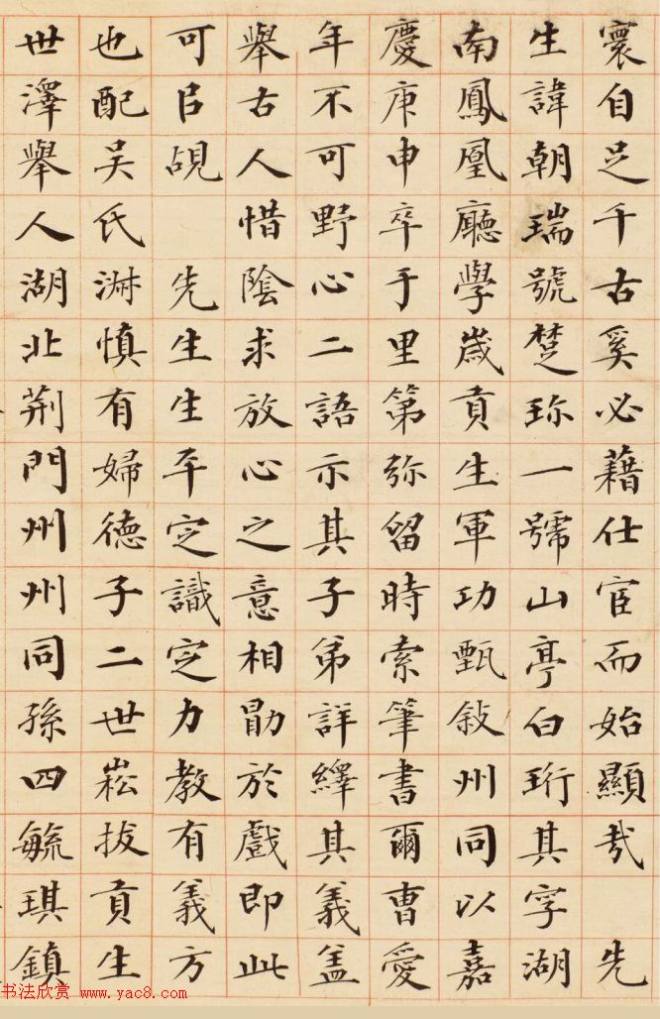 寰自足千古奚必藉仕宦而始顯哉 先
生諱朝瑞號楚珎一號山亭白珩其字湖
南鳳凰廳學歲貢生軍功甄敍州同以嘉
慶庚申卒于里第弥留時索筆書爾曹愛
年不可野心二語示其子弟詳繹其義盖
舉古人惜陰求放心之意相勖於戲即此
可㠯覘 先生生平定識定力教有義方
也配吴氏淋慎有婦德子二世崧拔貢生
世澤舉人湖北荆門州州同孫四毓琪鎮
书法欣赏 www.yac8.com